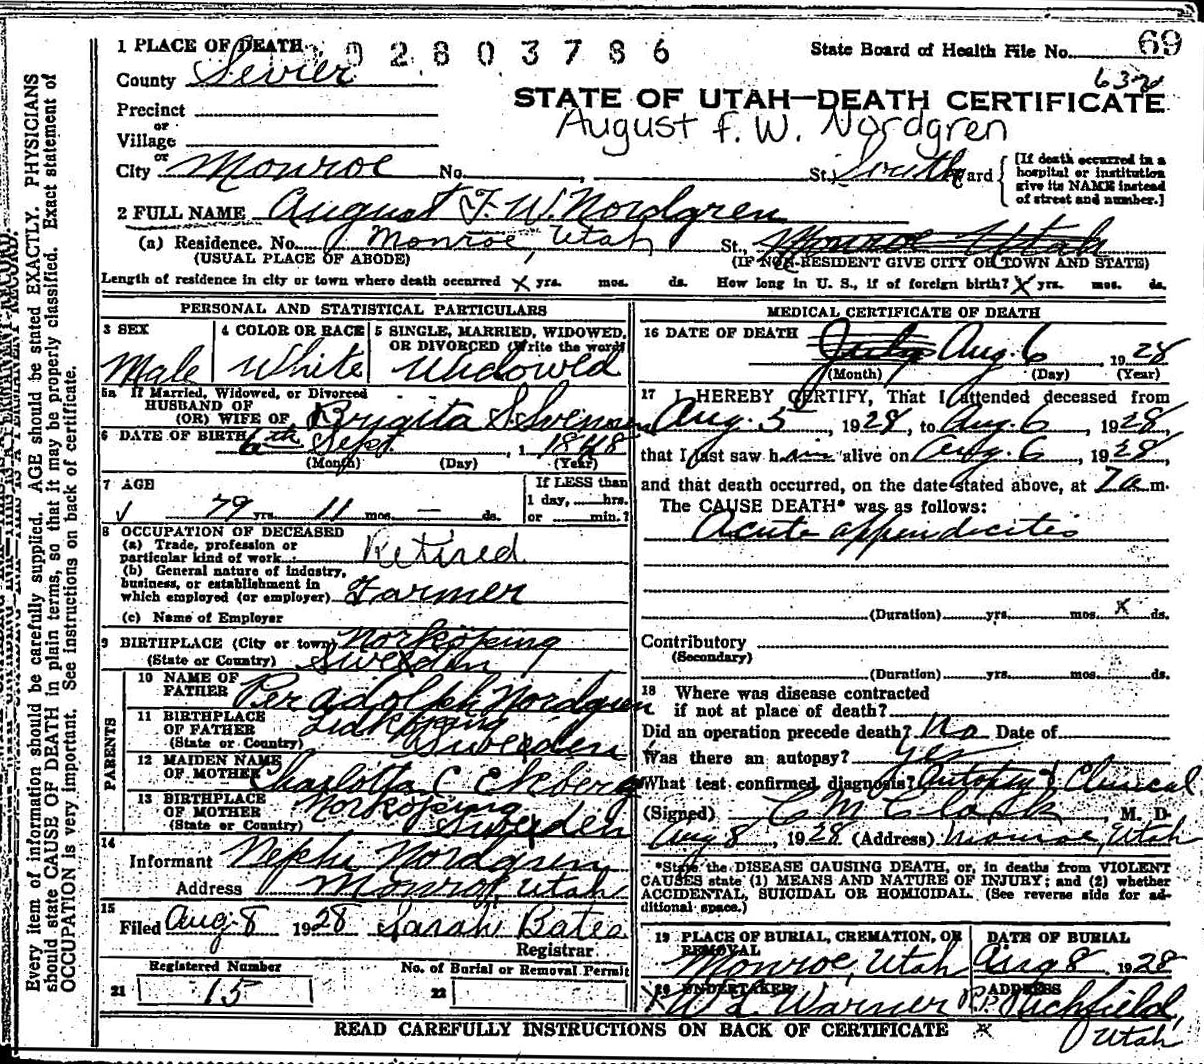 1 PLACE OF DEATH
92803786
State Board of Health File No. 69
County Sevier
632
STATE OF UTAH—DEATH CERTIFICATE
Precinct
August F. W. Nordgren
or
Village
or
City Monroe No. , St.; South Ward
[If death occurred in a hospital or institution give its NAME instead of street and number.]
2 FULL NAME August F. W. Nordgren
(a) Residence. No. Monroe, Utah St., Monroe Utah
(USUAL PLACE OF ABODE) (IF NON-RESIDENT GIVE CITY OR TOWN AND STATE)
Length of residence in city or town where death occurred X yrs. mos. ds. How long in U. S., if of foreign birth? X yrs. mos. ds.
PERSONAL AND STATISTICAL PARTICULARS
3 SEX
Male
4 COLOR OR RACE
White
5 SINGLE, MARRIED, WIDOWED,
OR DIVORCED (Write the word)
Widowed
5a If Married, Widowed, or Divorced
HUSBAND OF
(OR) WIFE OF Brigita S. Svenson
6 DATE OF BIRTH 6th Sept. , 1848
(Month) (Day) (Year)
7 AGE
79 yrs. 11 mos. — ds.
If LESS than
1 day, hrs.
or min.?
8 OCCUPATION OF DECEASED
(a) Trade, profession or
particular kind of work Retired
(b) General nature of industry,
business, or establishment in
which employed (or employer) Farmer
(c) Name of Employer
9 BIRTHPLACE (City or town) Norkoping
(State or Country) Sweden
PARENTS
10 NAME OF
FATHER Per Adolph Nordgren
11 BIRTHPLACE
OF FATHER Lidkoping
(State or Country) Sweden
12 MAIDEN NAME
OF MOTHER Charlotta C Ekberg
13 BIRTHPLACE
OF MOTHER Norkoping
(State or Country) Sweden
14
Informant Nephi Nordgren
Address Monroe, Utah
15
Filed Aug. 8 1928 Sarah Bates
Registrar.
Registered Number
21 15
No. of Burial or Removal Permit
22
MEDICAL CERTIFICATE OF DEATH
16 DATE OF DEATH July Aug. 6 , 1928
(Month) (Day) (Year)
17 I HEREBY CERTIFY, That I attended deceased from
Aug. 5 , 1928, to Aug. 6 , 1928,
that I last saw him alive on Aug. 6 , 1928,
and that death occurred, on the date stated above, at 7 a m.
The CAUSE DEATH* was as follows:
Acute appendicitis
(Duration) yrs. mos. X ds.
Contributory
(Secondary)
(Duration) yrs. mos. ds.
18 Where was disease contracted
if not at place of death?
Did an operation precede death? No Date of
Was there an autopsy? yes
What test confirmed diagnosis? Autopsy & Clinical
(Signed) C M Clark , M. D.
Aug 8 , 1928 (Address) Monroe, Utah
*State the DISEASE CAUSING DEATH, or, in deaths from VIOLENT
CAUSES state (1) MEANS AND NATURE OF INJURY; and (2) whether
ACCIDENTAL, SUICIDAL OR HOMICIDAL. (See reverse side for ad-
ditional space.)
19 PLACE OF BURIAL, CREMATION, OR
REMOVAL
Monroe, Utah
DATE OF BURIAL
Aug 8 1928
20 UNDERTAKER
W. L. Warner
ADDRESS
Richfield,
Utah
READ CAREFULLY INSTRUCTIONS ON BACK OF CERTIFICATE
Every item of information should be carefully supplied. AGE should be stated EXACTLY. PHYSICIANS
should state CAUSE OF DEATH in plain terms, so that it may be properly classified. Exact statement of
OCCUPATION is very important. See instructions on back of certificate.